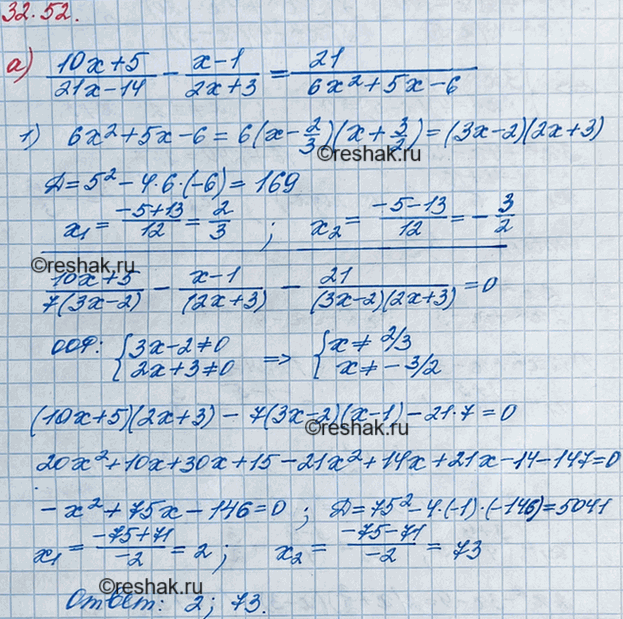 32.52.
а) (10x+5)/(21x-14) - (x-1)/(2x+3) = 21/(6x²+5x-6)
1) 6x²+5x-6=6(x-2/3)(x+3/2)=(3x-2)(2x+3)
©reshak.ru
Д=5²-4·6·(-6)=169
x₁=(-5+13)/12=2/3 ; x₂=(-5-13)/12=-3/2
©reshak.ru
(10x+5)/(7(3x-2)) - (x-1)/((2x+3)) - 21/((3x-2)(2x+3))=0
ООФ: {3x-2≠0 => {x≠2/3
2x+3≠0 x≠-3/2
(10x+5)(2x+3)-7(3x-2)(x-1)-21·7=0
©reshak.ru
20x²+10x+30x+15-21x²+14x+21x-14-147=0
-x²+75x-146=0 ; Д=75²-4·(-1)·(-146)=5041
x₁=(-75+71)/-2=2 ; x₂=(-75-71)/-2=73
©reshak.ru
Ответ: 2; 73.